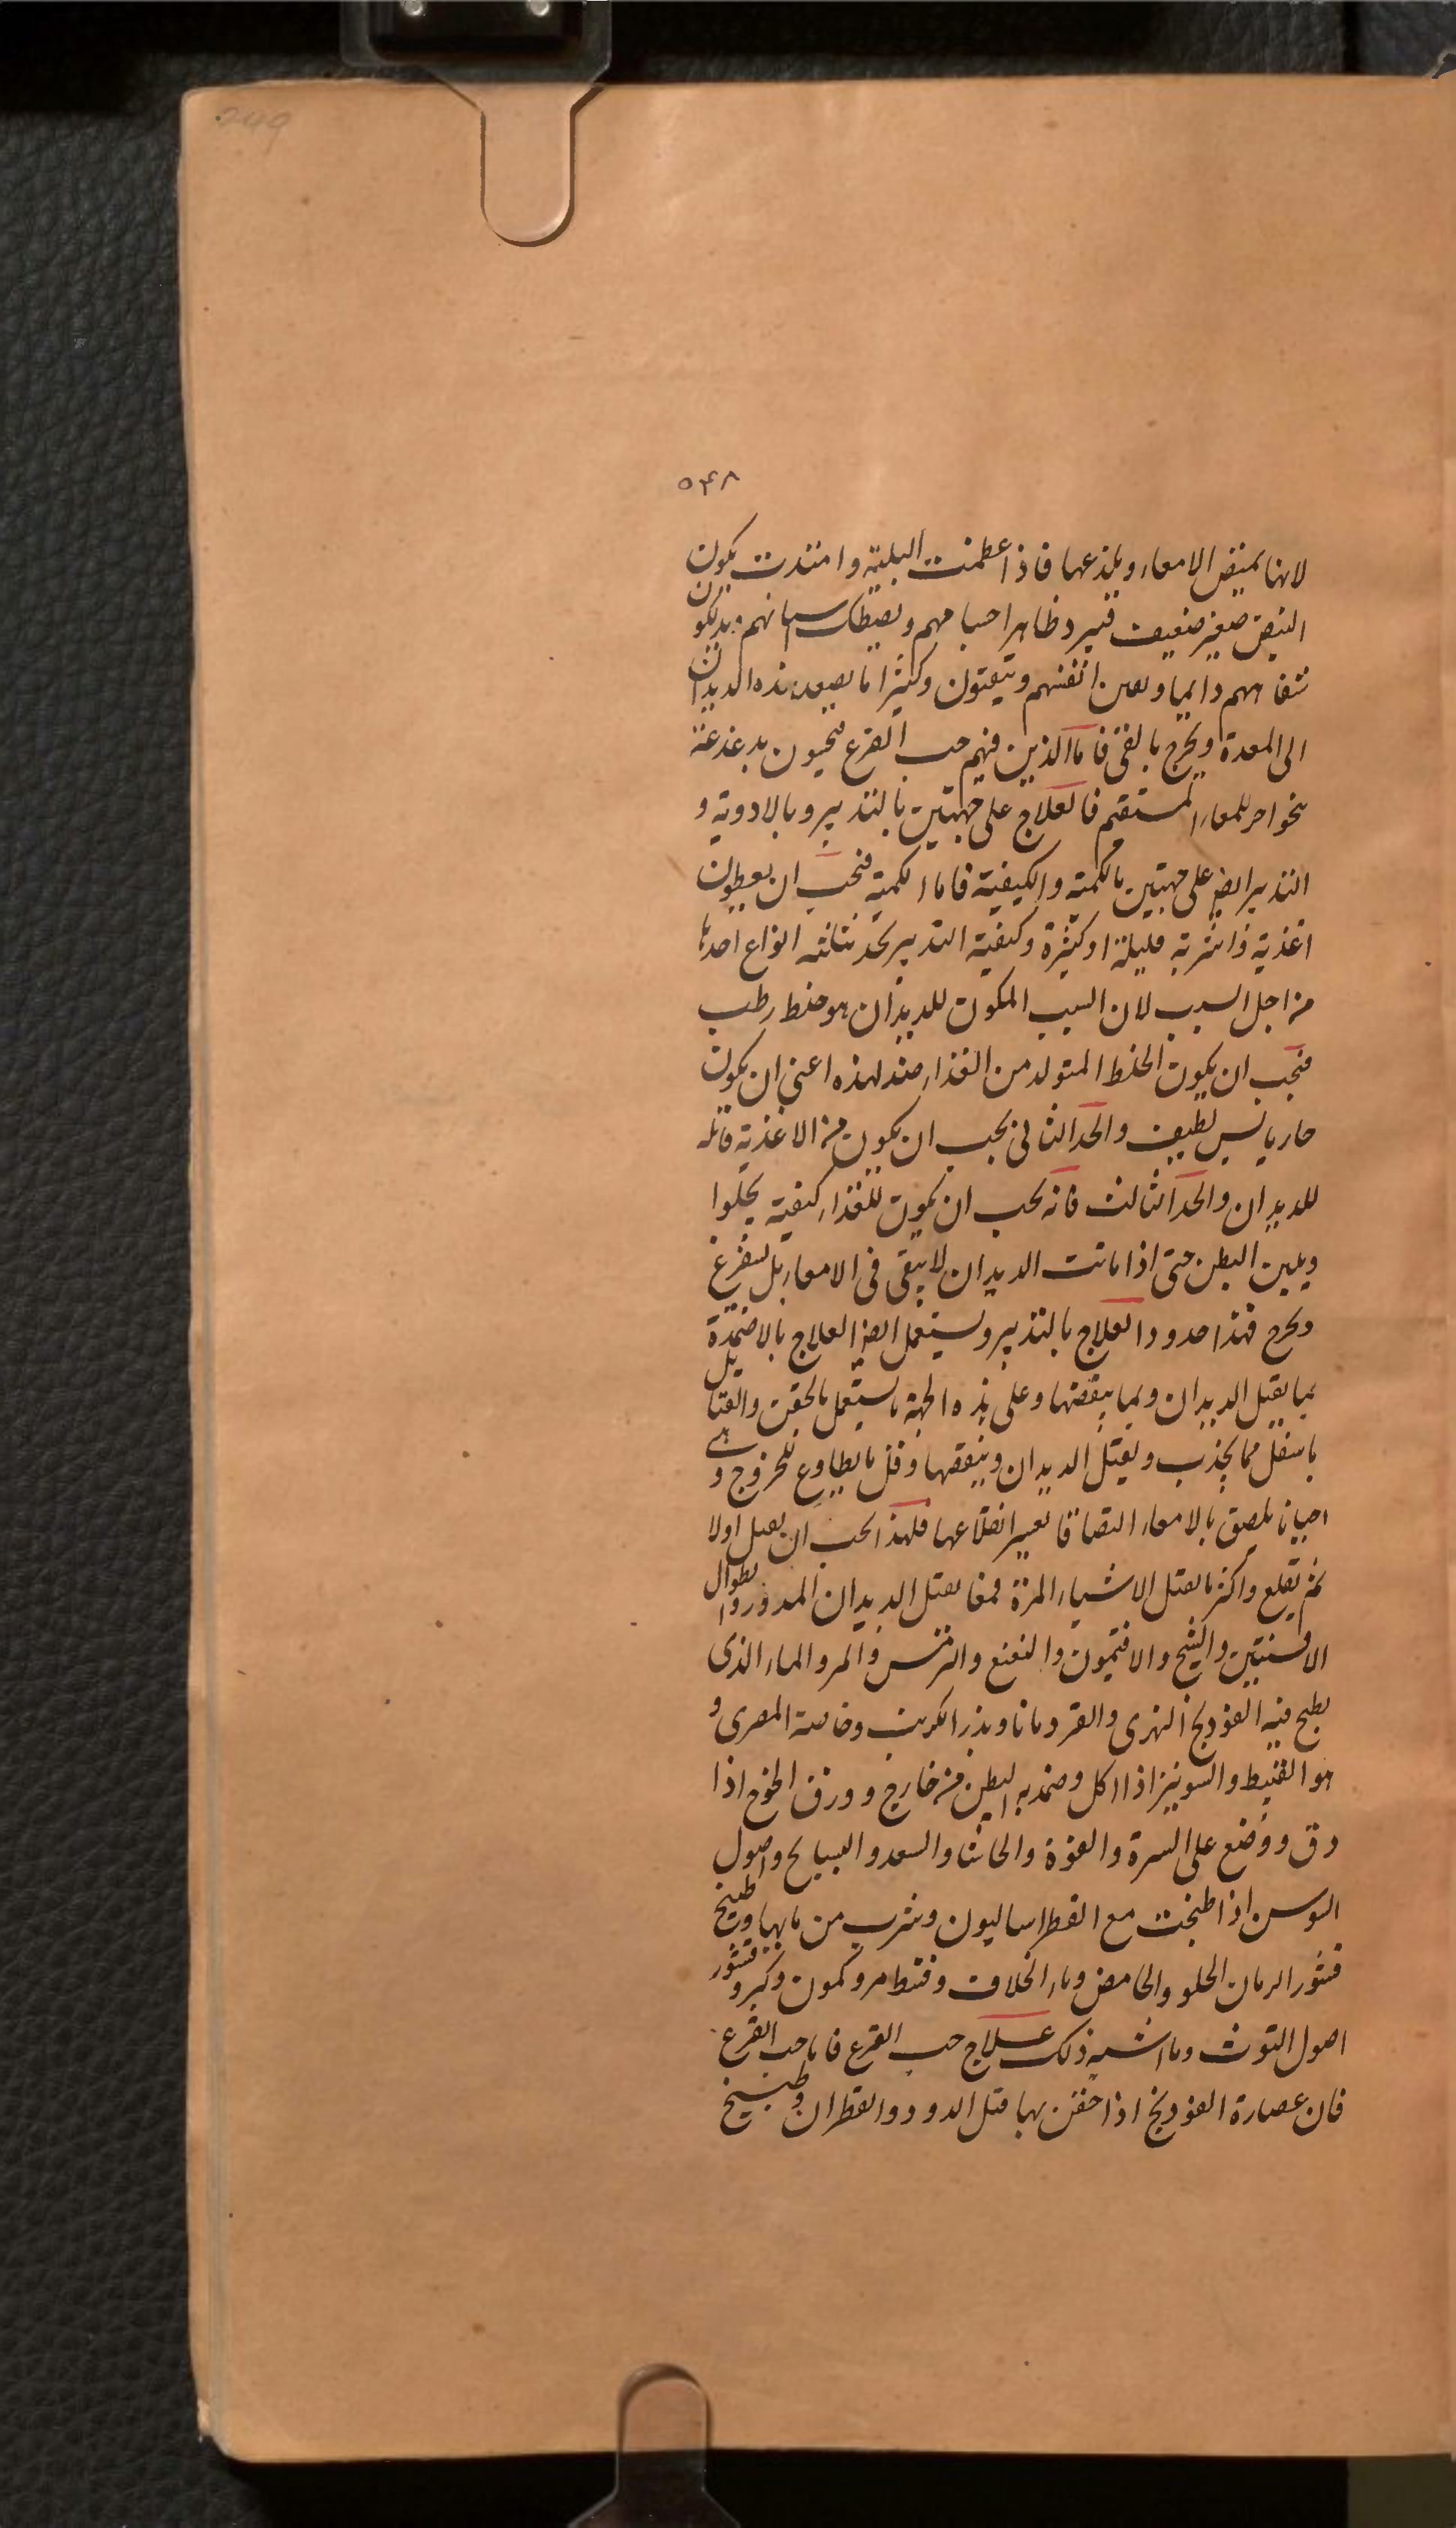 249
٥۴٨
لانها تمتص الامعاء ويلذعها فاذا عظمت البلية وامتدت يكون
النبض صغير ضعيف فيبرد ظاهر اجسامهم ويصطك اسنانهم ويدلكون
شفاههم دايما وتعين انفسهم ويتقيئون وكثيرا ما يصعد هذه الديدان
الى المعدة ويخرج بالقئ فاما الذين فيهم حب القرع فيحسون بدغدغة
بخواحر للمعاء المستقيم فالعلاج على جهتين بالتدبير وبالادوية و
التدبير ايض على جهتين بالكمية والكيفية فاما الكمية فيجب ان يعطون
اغذية واشربة قليلة او كثيرة وكيفية التدبير يحد بثلاثة انواع احدها
من اجل السبب لان السبب المكون للديدان هو خلط رطب
فيجب ان يكون الخلط المتولد من الغذاء ضد لهذه اعنى ان يكون
حار يابس لطيف والحد الثانى يجب ان يكون من الاغذية قاتله
للديدان والحد الثالث فانه يجب ان يكون للغذاء كيفية يجلوا
ويلين البطن حتى اذا ماتت الديدان لا يبقى فى الامعاء بل يستفرغ
ويخرج فهذا حدود العلاج بالتدبير ويستعمل ايض العلاج بالاضمدة
بما يقتل الديدان وبما ينقصها وعلى هذه الجهة ما يستعمل بالحقن والفتايل
باسفل مما يجذب ويقتل الديدان وينقصها وقل ما يطاوع للخروج وهى
احيانا يلصق بالامعاء التصاقا يعسر انقلاعها فلهذا يجب ان يقتل اولا
ثم يقلع واكثر ما يقتل الاشياء المرة فمما يقتل الديدان المدور والطوال
الافسنتين والشيح والافتيمون والنعنع والترمس والمر والماء الذى
يطبخ فيه الفودنج النهرى والقردمانا وبذر الكرنب وخاصة المصرى و
هو القنبيط والسونيز اذا اكل وضمد به البطن من خارج وورق الخوخ اذا
دق ووضع على السرة والفوة والحاشا والسعد والبسبايج واصول
السوسن اذا طبخت مع الفطراساليون وشرب من مايها وطبيخ
قشور الرمان الحلو والحامض وماء الخلاف وقسط مر وكمون وكبر وقشور
اصول التوث وما اشبه ذلك علاج حب القرع فاما حب القرع
فان عصارة الفودنج اذا حقن بها قتل الدود والقطران وطبيخ